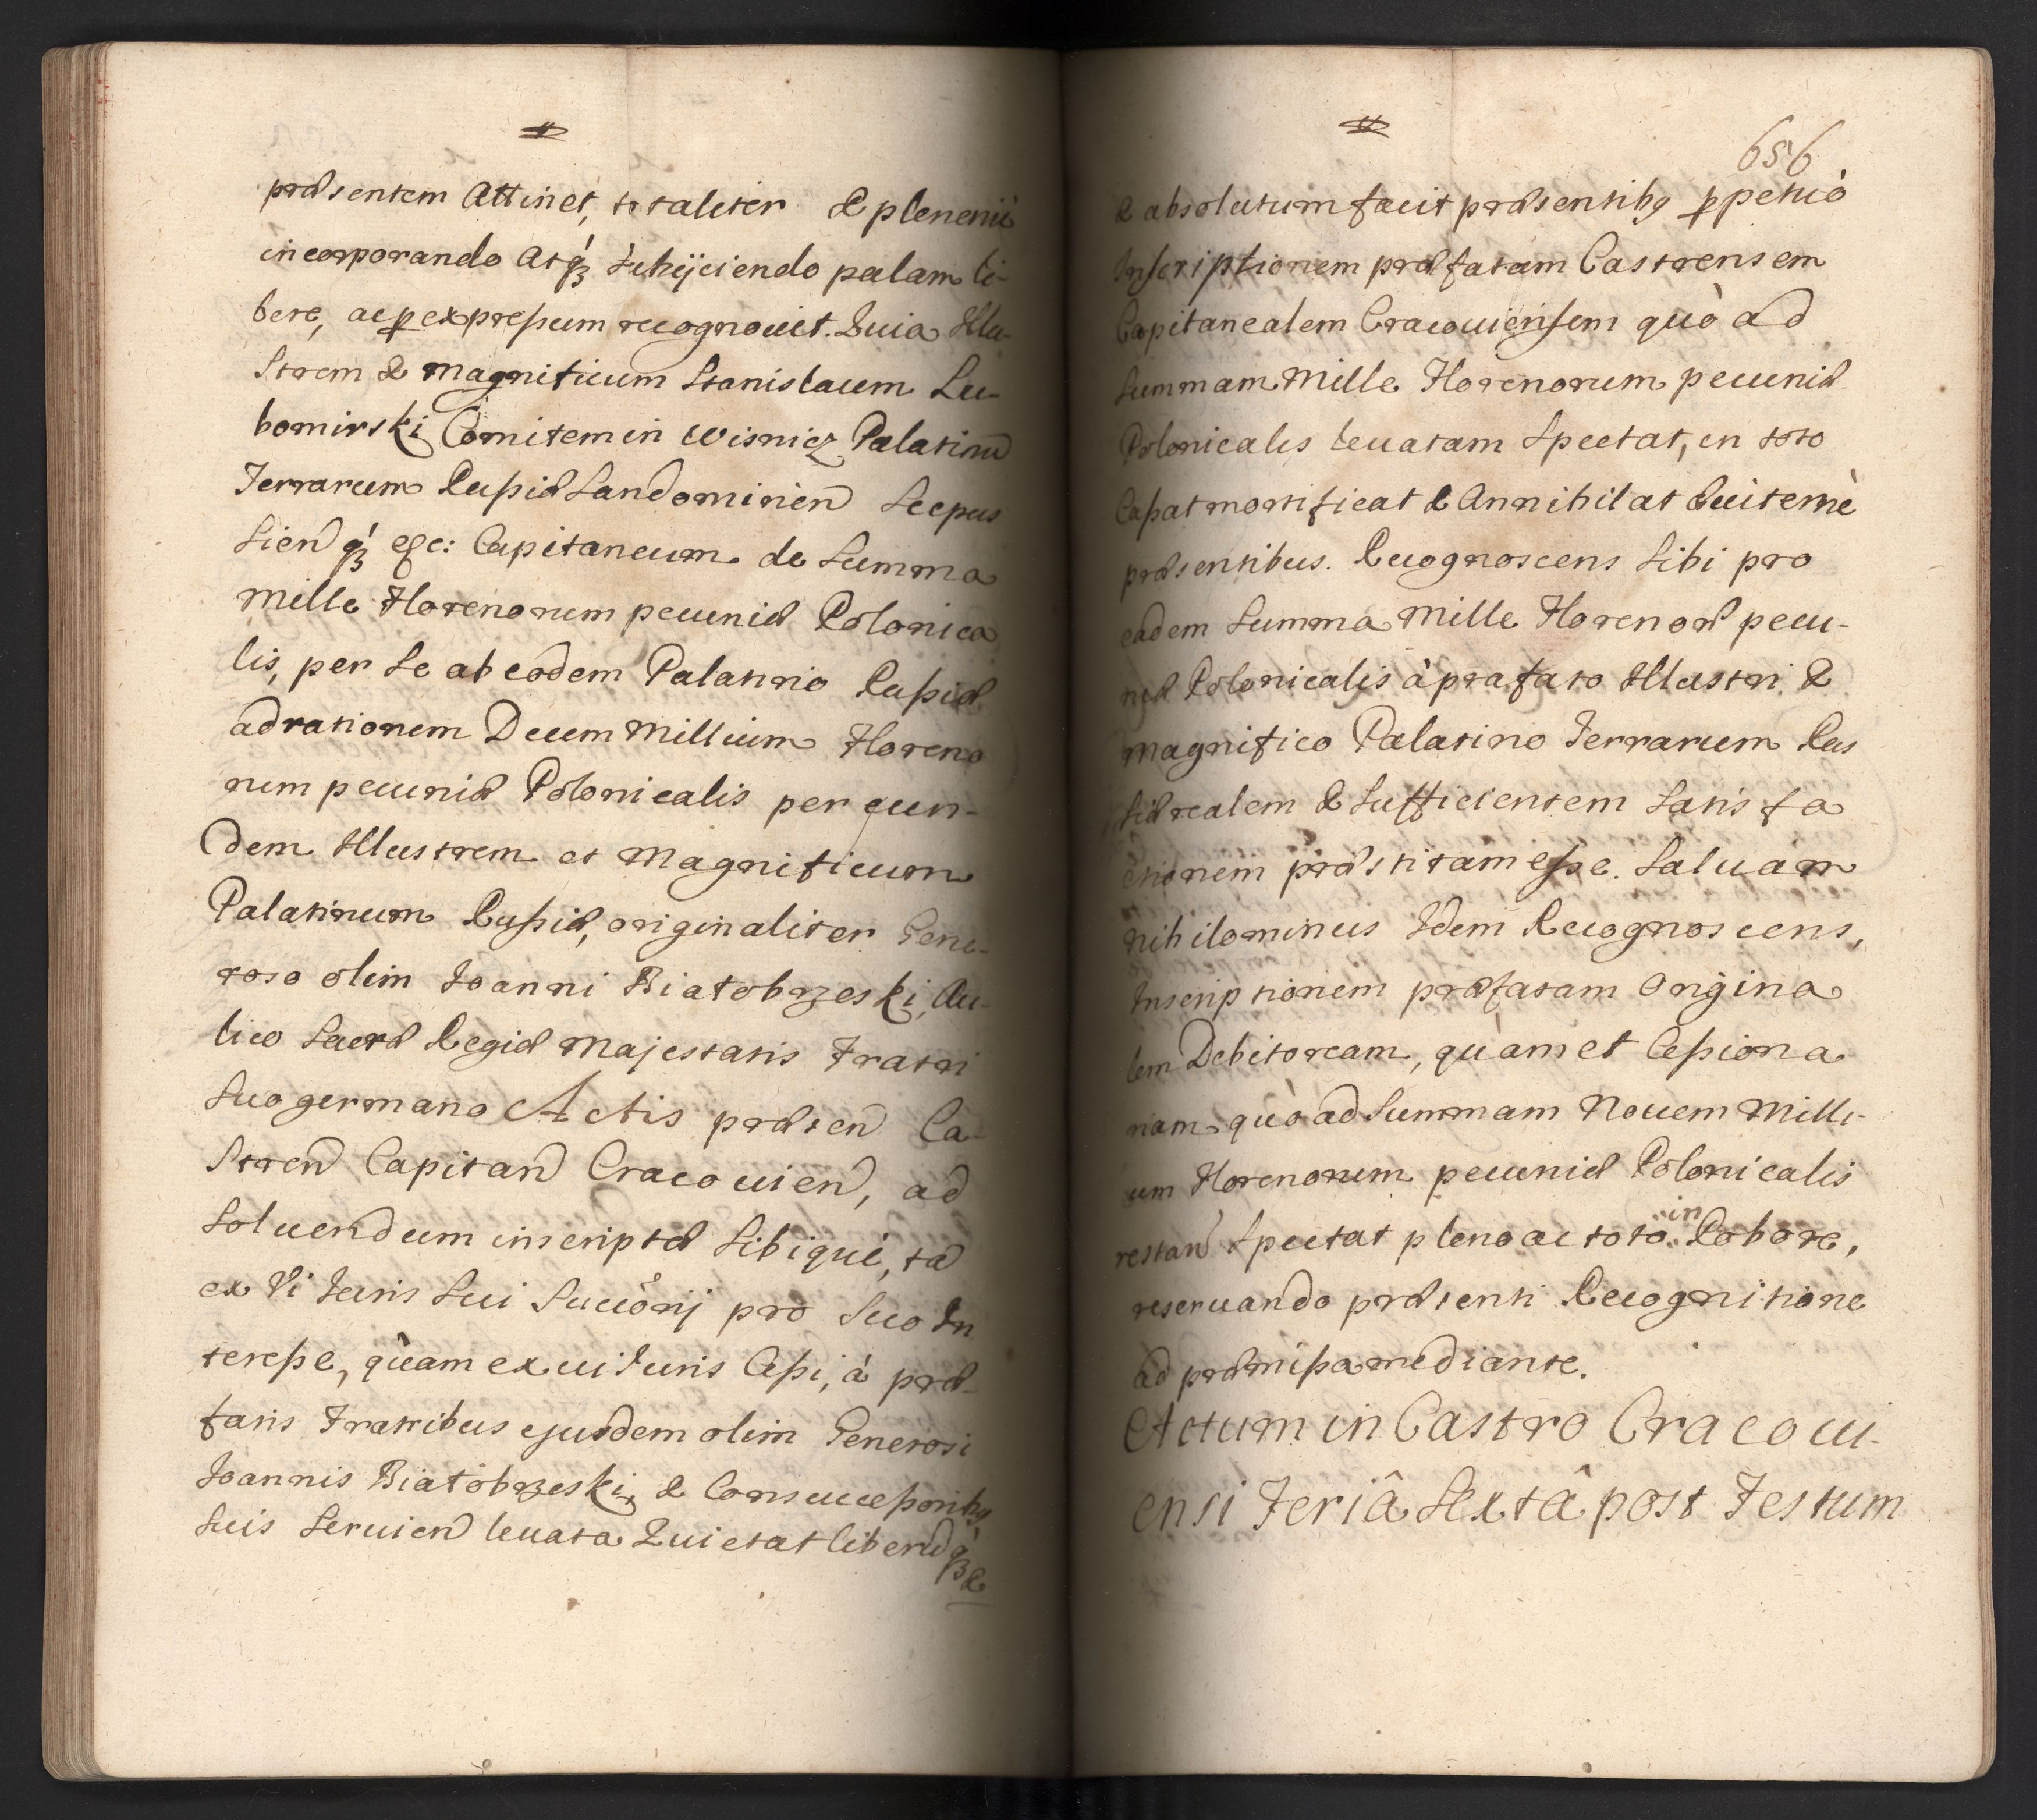 præsentem Attinet, totaliter & plenenie
incorporando Atq́ȝ Subijciendo palam li-
bere, ac ꝑ expressum recognouit. Quia Illu-
Strem & magnificum Stanislaum Lu-
bomirski Comitem in Wisnicz Palatinū
Terrarum Russiæ Sandomirien̄ Scepus
Sien̄ q́ȝ etc: Capitaneum de Summa
Mille Florenorum pecuniæ Polonica
lis, per Se ab eodem Palatino Russiæ
ad rationem Decem Millium Floreno
rum pecuniæ Polonicalis per eun-
dem Illustrem et Magnificum
Palatinum Russiæ, originaliter Gene-
roso olim Joanni Białobrzeski, Au-
lico Sacræ Regiæ Majestatis Fratri
Suo germano Actis præsen̄ Ca-
Stren̄ Capitan̄ Cracouien̄, ad
Soluendum inscriptæ Sibique, tā
ex Vi Juris Sui Succōrij pro Suo In
teresse, quàm ex ui Juris Cessi, à præ-
fatis Fratribus ejusdem olim Generosi
Joannis Białobrzeski, & Consuccessoribꝫ
Suis Seruien̄ leuata Quietat liberū q́ȝ &
656
& absolutum facit præsentibꝫ ꝑpetuò
Inscriptionem præfatam Castrensem
Capitanealem Cracouiensem quò ad
Summam Mille Florenorum pecuniæ
Polonicalis leuatam Spectat, in toto
Cassat mortificat & Annihilat Quitemè
præsentibus. Recognoscens Sibi pro
eadem Summa Mille Florenorū pecu-
niæ Polonicalis à præfato Illustri &
Magnifico Palatino Terrarum Rus
Siæ realem & Sufficientem Satis fa
ctionem præstitam esse. Saluam
nihilominus Idem Recognoscens,
Inscriptionem præfatam Origina
lem Debitoream, quàm et Cessiona
riam quò ad Summam Nouem Milli-
um Florenorum pecuniæ Polonicalis
restan̄ Spectat pleno ac toto in Robore,
reseruando præsenti Recognitione
ad præmissa mediante.
Actum in Castro Cracoui-
ensi Feriâ Sextâ post Festum